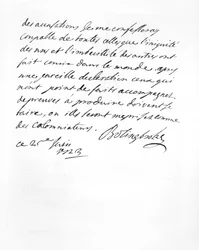 des accusations je me confesseray
coupable de toutes celles que l'iniquité
des uns et l'imbecilité des autres ont
fait courir dans le monde. apres
une pareille declaration ceux qui
n'ont point de faits accompagnez
de preuves à produire doivent se
taire, ou ils seront meprisez comme
des calomniateurs.
Bolingbroke
ce
Juin
1723